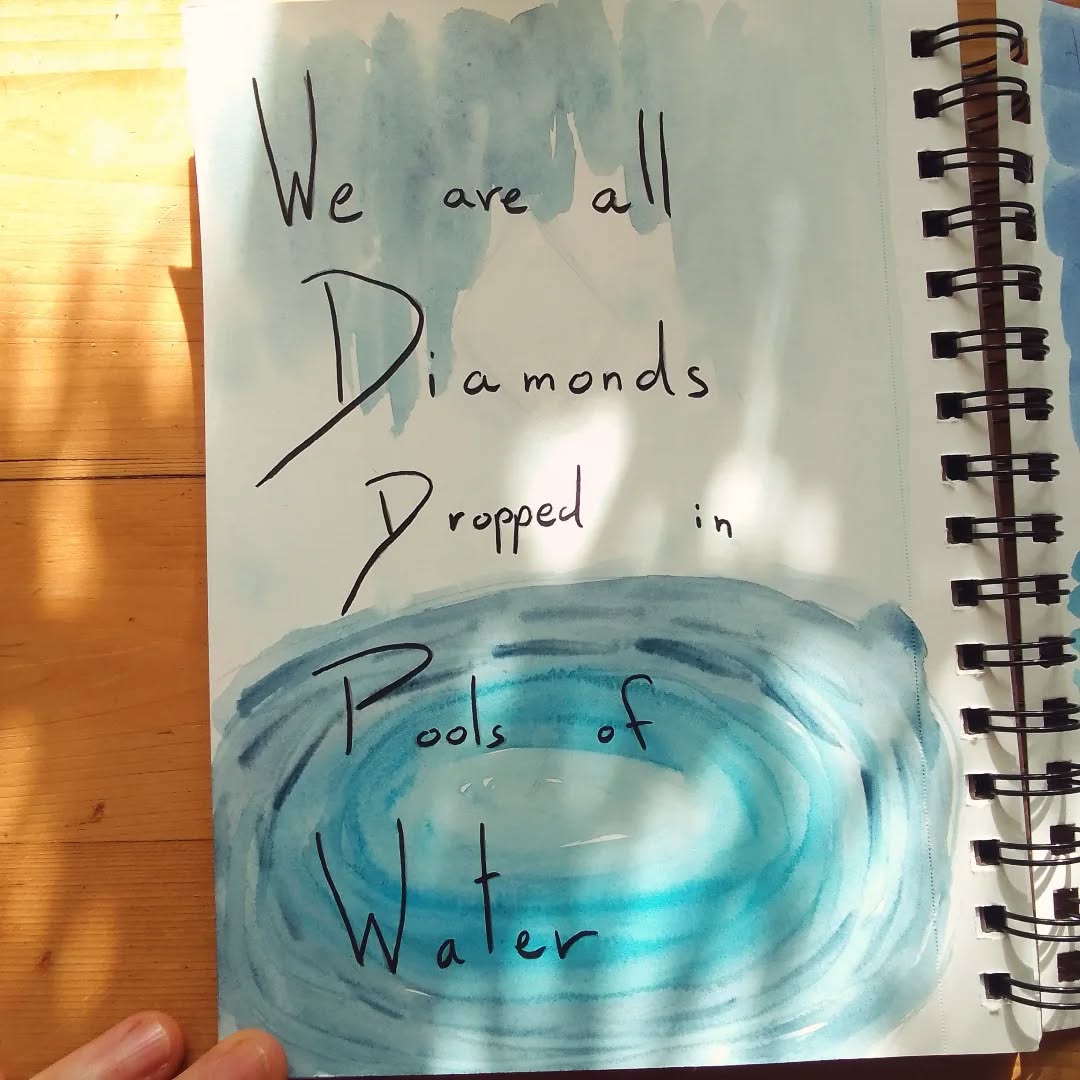 We are all
Diamonds
Dropped in
Pools of
Water